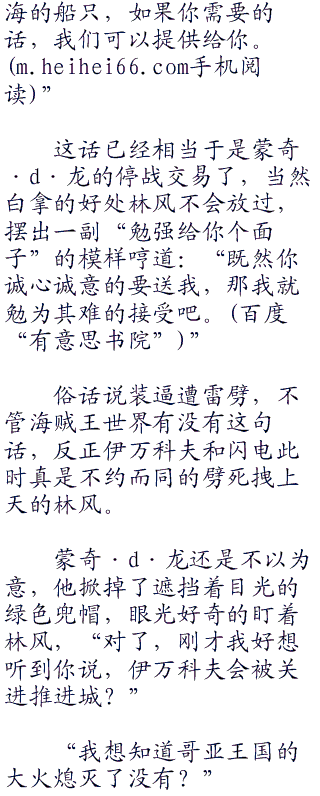 海的船只，如果你需要的
话，我们可以提供给你。
(m.heihei66.com手机阅
读)”
这话已经相当于是蒙奇
·d·龙的停战交易了，当然
白拿的好处林风不会放过，
摆出一副“勉强给你个面
子”的模样哼道：“既然你
诚心诚意的要送我，那我就
勉为其难的接受吧。(百度
“有意思书院”)”
俗话说装逼遭雷劈，不
管海贼王世界有没有这句
话，反正伊万科夫和闪电此
时真是不约而同的劈死拽上
天的林风。
蒙奇·d·龙还是不以为
意，他掀掉了遮挡着目光的
绿色兜帽，眼光好奇的盯着
林风，“对了，刚才我好想
听到你说，伊万科夫会被关
进推进城？”
“我想知道哥亚王国的
大火熄灭了没有？”